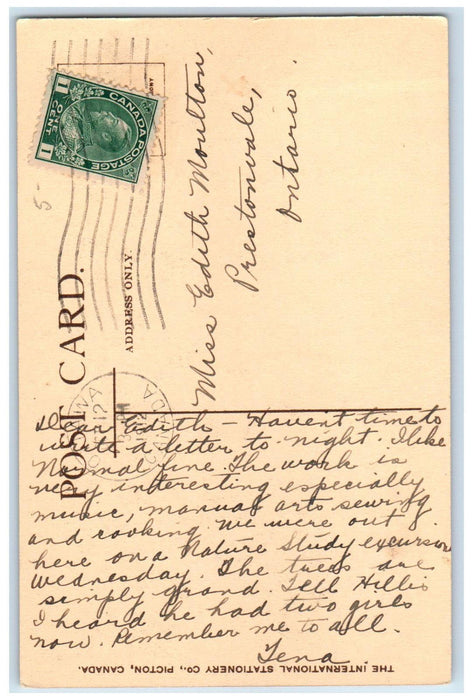 POST CARD.
ADDRESS ONLY.
CANADA POSTAGE
1 1
CENT
Miss Edith Moulton,
Prestonvale,
Ontario.
Dear Edith - Havent time to
write a letter to night. I like
Normal fine. The work is
very interesting especially
music, manual arts sewing
and cooking. We were out
here on a Nature Study excursion
Wednesday. The trees are
simply grand. Tell Hillis
I heard he had two girls
now. Remember me to all.
Tena.
THE INTERNATIONAL STATIONERY CO., PICTON, CANADA.
5-